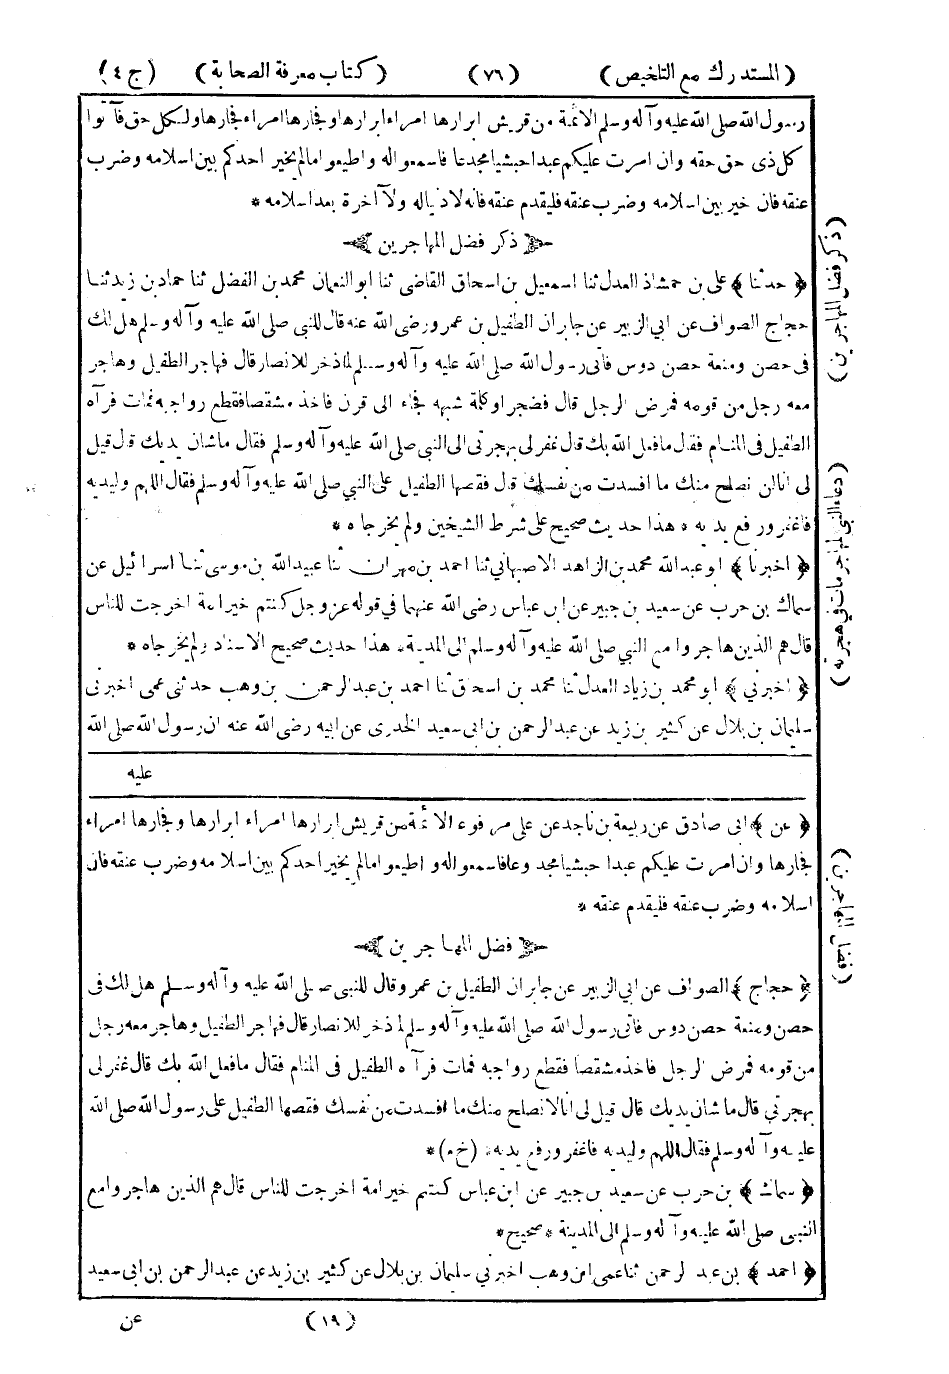 (المستدرك مع التلخيص) (٧٦) (كتاب معرفة الصحابة) (ج ٤)
رسول الله صلى الله عليه وآله وسلم الائمة من قريش ابرارها امراء ابرارها وفجارها امراء فجارها ولكل حق فآتوا
كل ذى حق حقه وان امرت عليكم عبدا حبشيا مجدعا فاسمعوا له واطيعوا مالم يخير احدكم بين اسلامه وضرب
عنقه فان خير بين اسلامه وضرب عنقه فليقدم عنقه فانه لا دنيا له ولا آخرة بعد اسلامه *
﴿ ذكر فضل المهاجرين ﴾
﴿ حدثنا ﴾ على بن حمشاذ العدل ثنا اسمعيل بن اسحاق القاضى ثنا ابو النعمان محمد بن الفضل ثنا حماد بن زيد ثنا
حجاج الصواف عن ابي الزبير عن جابر ان الطفيل بن عمرو رضى الله عنه قال للنبى صلى الله عليه وآله وسلم هل لك
فى حصن ومنعة حصن دوس فابى رسول الله صلى الله عليه وآله وسلم لما ذخر للانصار قال فهاجر الطفيل وهاجر
معه رجل من قومه فمرض الرجل قال فضجر او كلمة شبهه فجاء الى قرن فاخذ مشقصا فقطع رواجبه فمات فرآه
الطفيل فى المنام فقال ما فعل الله بك قال غفر لى بهجرتى الى النبى صلى الله عليه وآله وسلم فقال ما شان يديك قال قيل
لى انا لن نصلح منك ما افسدت من نفسك قال فقصها الطفيل على النبي صلى الله عليه وآله وسلم فقال اللهم وليديه
فاغفر ورفع يديه * هذا حديث صحيح على شرط الشيخين ولم يخرجاه *
﴿ اخبرنا ﴾ ابو عبد الله محمد بن الزاهد الاصبهاني ثنا احمد بن مهران ثنا عبيد الله بن موسى ثنا اسرائيل عن
سماك بن حرب عن سعيد بن جبير عن ابن عباس رضى الله عنهما فى قوله عز وجل كنتم خير امة اخرجت للناس
قال هم الذين هاجروا مع النبي صلى الله عليه وآله وسلم الى المدينة * هذا حديث صحيح الاسناد ولم يخرجاه *
﴿ اخبرني ﴾ ابو محمد بن زياد العدل ثنا محمد بن اسحاق ثنا احمد بن عبد الرحمن بن وهب حدثنى عمى اخبرنى
سليمان بن بلال عن كثير بن زيد عن عبد الرحمن بن ابى سعيد الخدرى عن ابيه رضى الله عنه ان رسول الله صلى الله
عليه
﴿ عن ﴾ ابى صادق عن ربيعة بن ناجد عن على مرفوعا الائمة من قريش ابرارها امراء ابرارها وفجارها امراء
فجارها وان امرت عليكم عبدا حبشيا مجدوعا فاسمعوا له واطيعوا مالم يخير احدكم بين اسلامه وضرب عنقه فان
اسلامه وضرب عنقه فليقدم عنقه *
﴿ فضل المهاجرين ﴾
﴿ حجاج ﴾ الصواف عن ابي الزبير عن جابر ان الطفيل بن عمرو قال للنبى صلى الله عليه وآله وسلم هل لك فى
حصن ومنعة حصن دوس فابى رسول الله صلى الله عليه وآله وسلم لما ذخر للانصار قال فهاجر الطفيل وهاجر معه رجل
من قومه فمرض الرجل فاخذ مشقصا فقطع رواجبه فمات فرآه الطفيل فى المنام فقال ما فعل الله بك قال غفر لى
بهجرتي قال ما شان يديك قال قيل لى انا لا نصلح منك ما افسدت من نفسك فقصها الطفيل على رسول الله صلى الله
عليه وآله وسلم فقال اللهم وليديه فاغفر ورفع يديه * (خ م) *
﴿ سماك ﴾ بن حرب عن سعيد بن جبير عن ابن عباس كنتم خير امة اخرجت للناس قال هم الذين هاجروا مع
النبى صلى الله عليه وآله وسلم الى المدينة * صحيح *
﴿ احمد ﴾ بن عبد الرحمن ثنا عمى ابن وهب اخبرني سليمان بن بلال عن كثير بن زيد عن عبد الرحمن بن ابى سعيد
(١٩) عن
(ذكر فضل المهاجرين)
(دعاء النبي لمهاجر مات في هجرته)
(فضل المهاجرين)